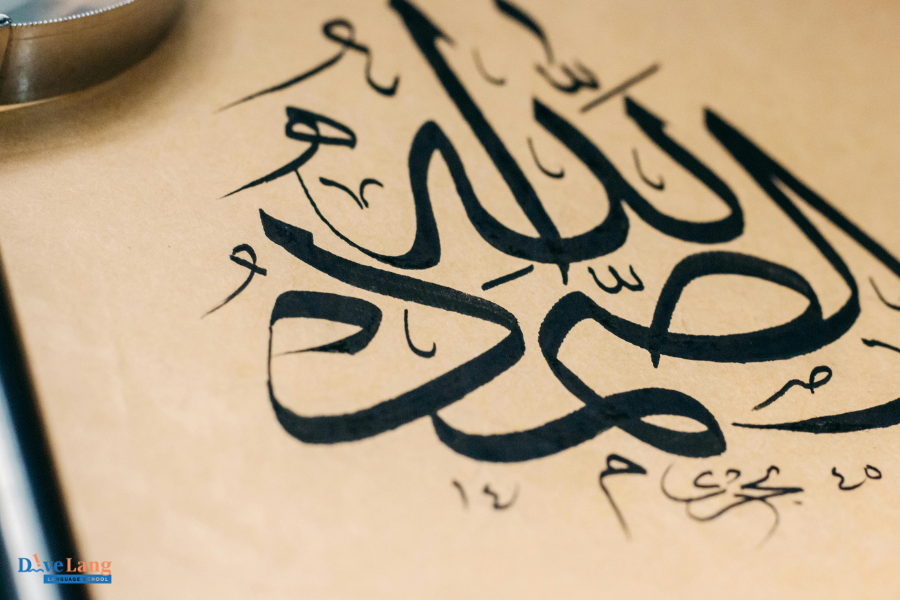 الله
الصمد
١٤ ٤٥
DiveLang
LANGUAGE SCHOOL